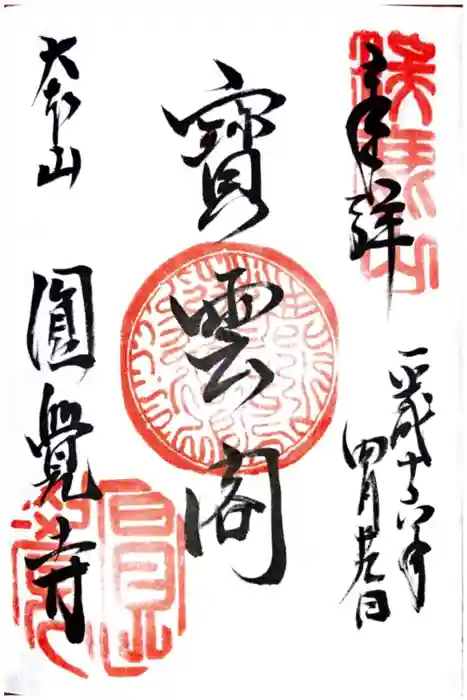 奉拝
平成十六年
四月廿九日
寳雲閣
大本山
圓覺寺